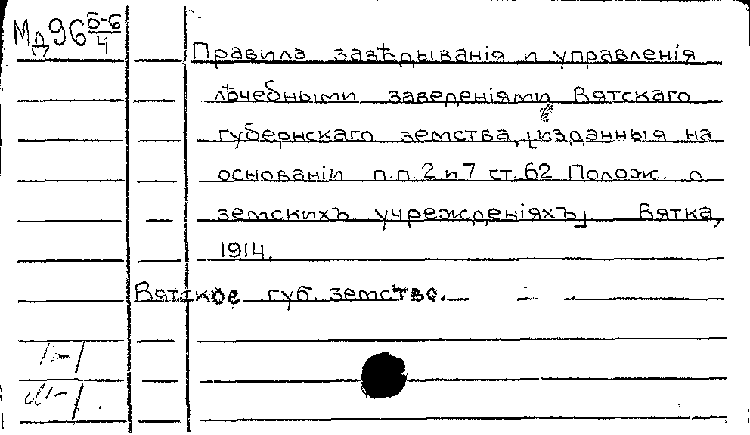 Мд96 Б-6/4
Правила завѣдыванія и управленія
лѣчебными заведеніями Вятскаго
губернскаго земства, [изданныя на
основаніи п.п. 2 и 7 ст. 62 Полож. о
земскихъ учрежденіяхъ] Вятка,
1914.
Вятское губ. земство.